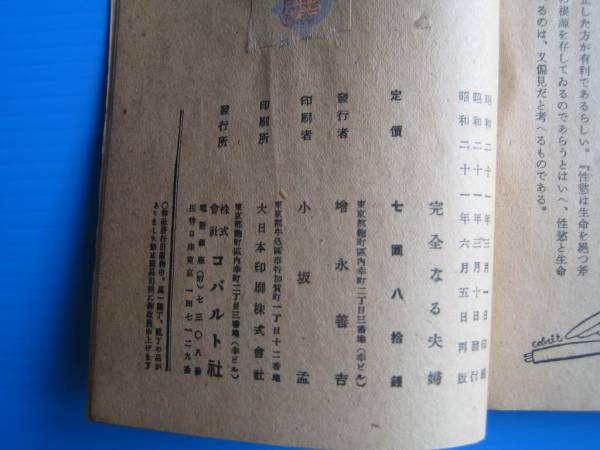 正した方が有利であるらしい。『性慾は生命を絶つ斧
の根源を存してゐるのであらうとはいへ、性慾と生命
るのは、又偏見だと考へるものである。
cobalt
昭和二十一年三月一日印刷
昭和二十一年三月十日發行
昭和二十一年六月五日再版
完全なる夫婦
定價 七圓八拾錢
東京都麴町區内幸町二丁目三番地(幸ビル)
發行者 增永善吉
印刷者 小坂孟
東京都牛込區市谷加賀町一丁目十二番地
印刷所 大日本印刷株式會社
東京都麴町區内幸町二丁目三番地(幸ビル)
發行所 株式會社 コバルト社
電話銀座(57)七三〇八番
振替口座東京一四七一二九番